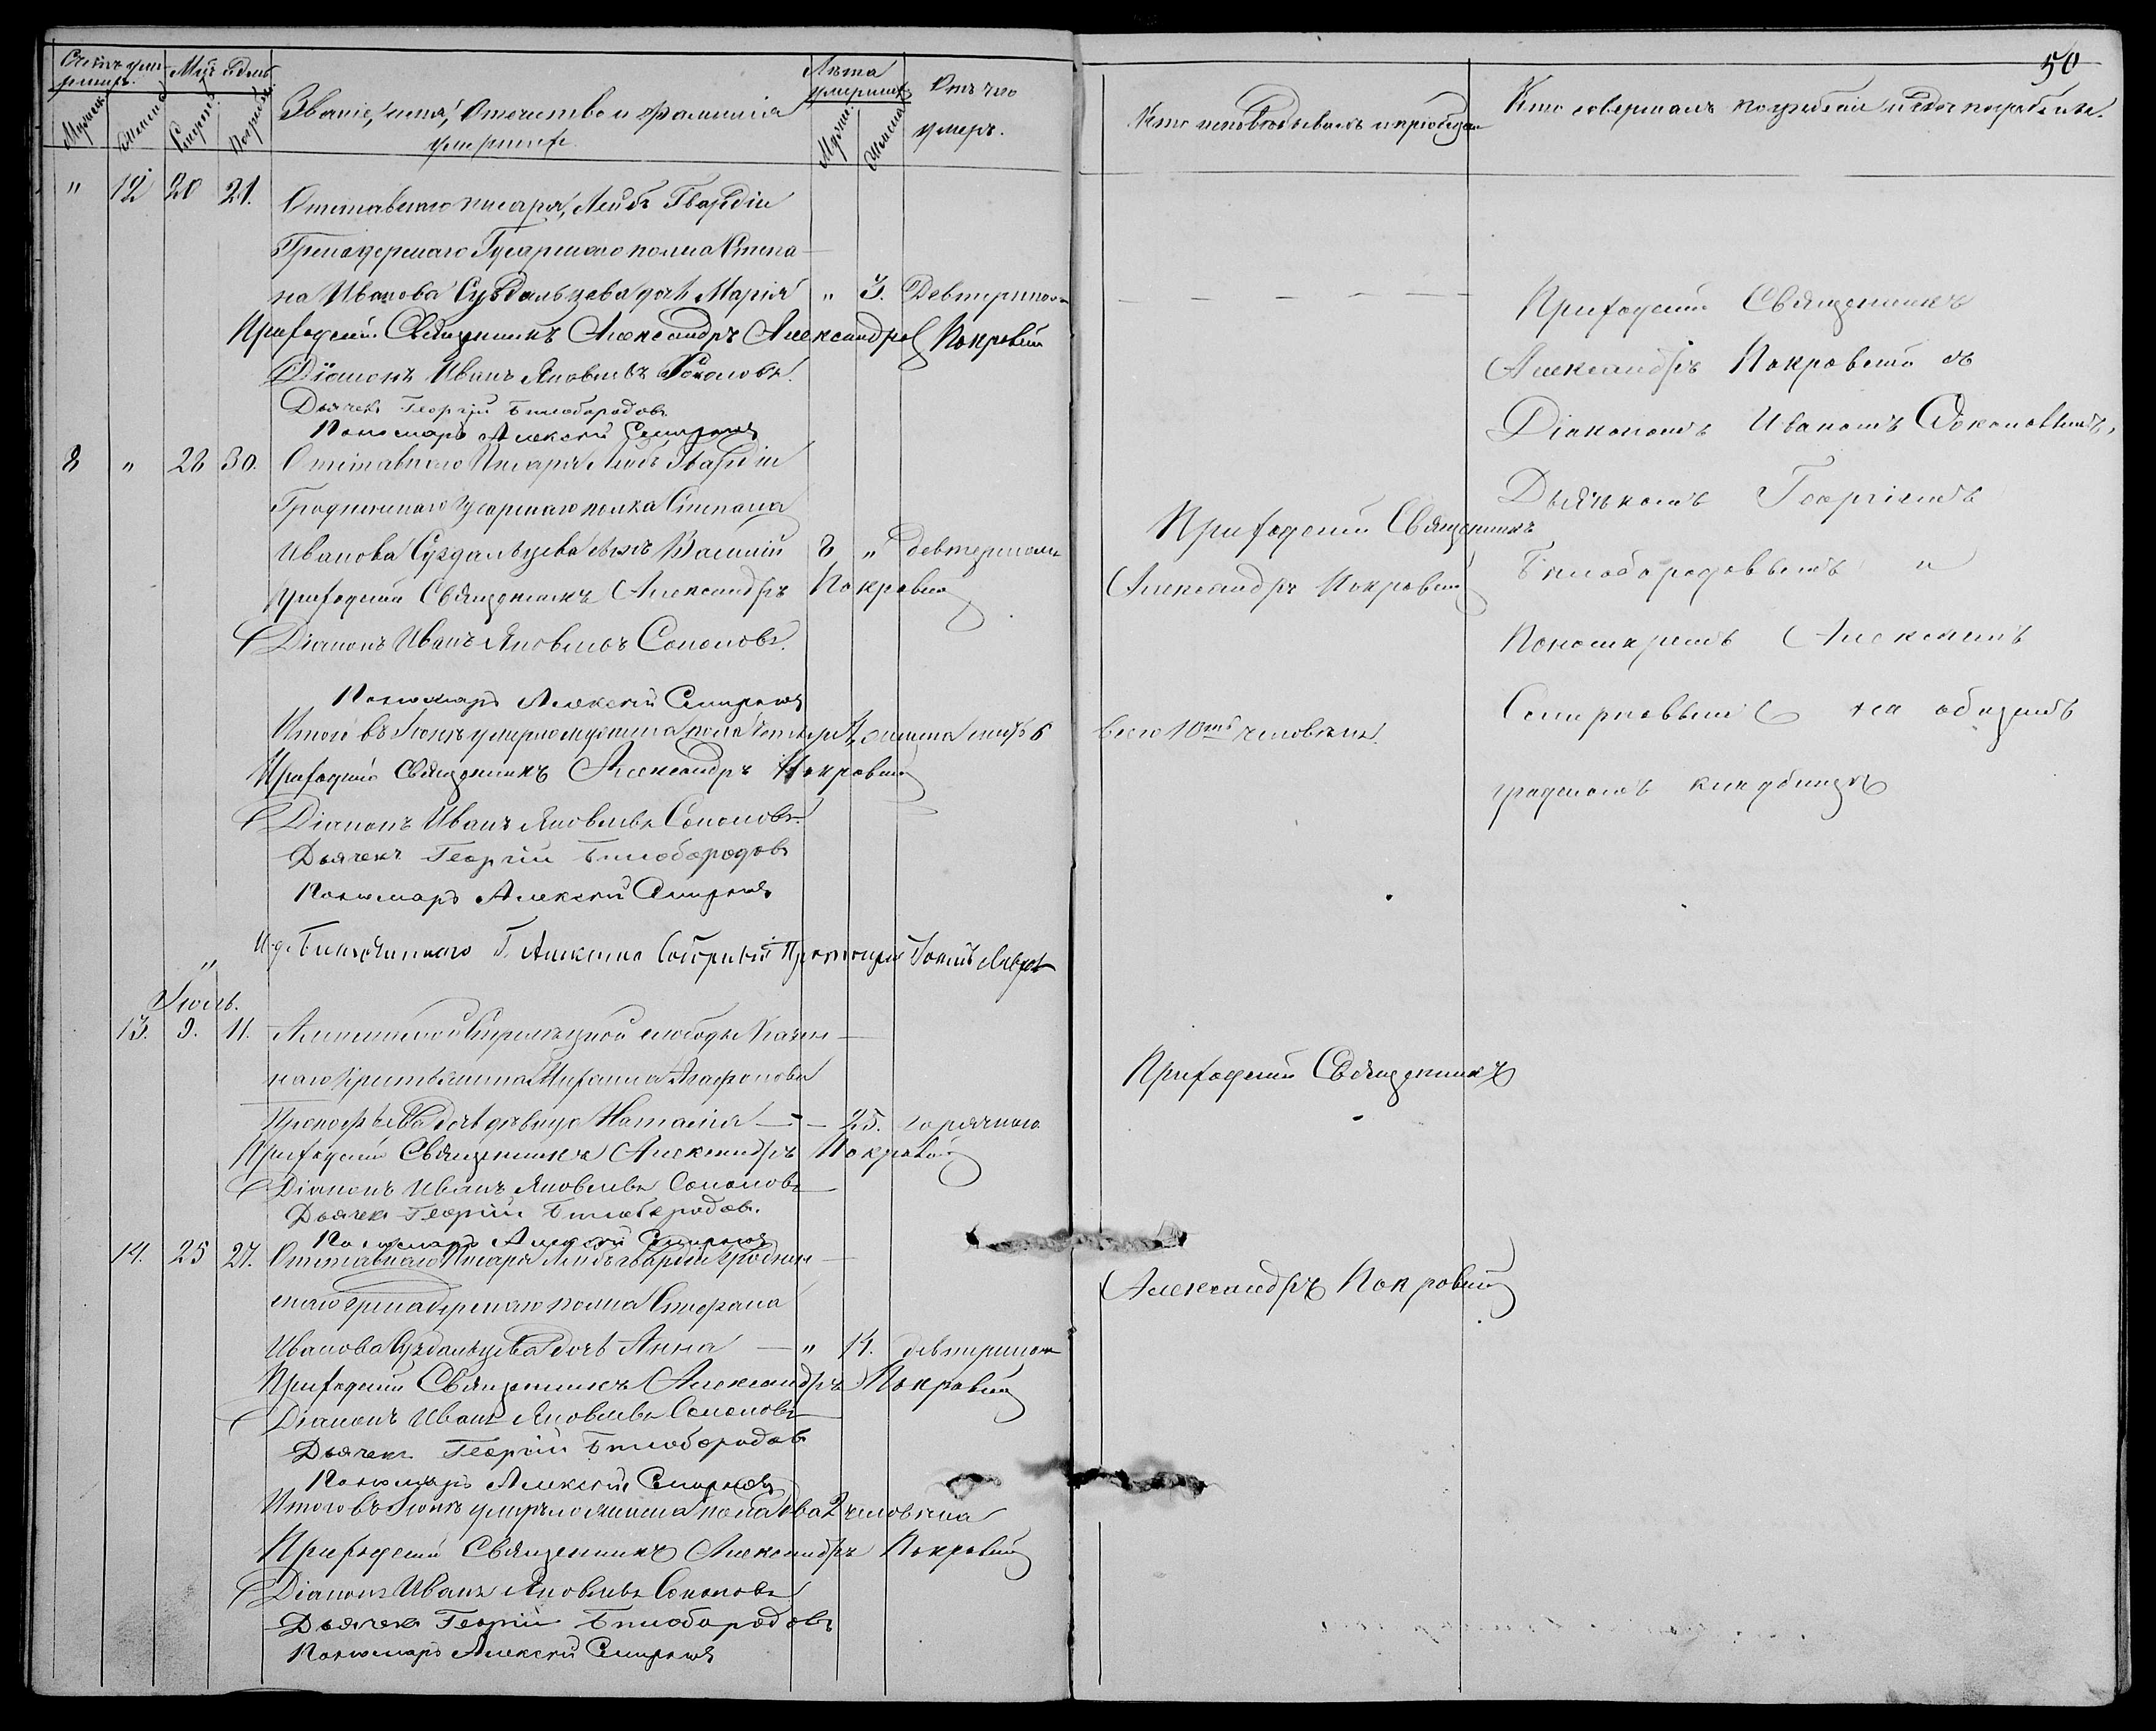 50
Счетъ умершихъ.
Мѣс. и день
Званіе, имя, отчество и фамилія умершихъ.
Лѣта умершихъ
Отъ чего умеръ.
Кто исповѣдывалъ и пріобщалъ
Кто совершалъ погребеніе и гдѣ погребены.
Мужеск.
Женска
Смерти
Погребен.
Мужес.
Женска
" 12 20 21. Отставнаго писаря, Лейбъ Гвардіи
Гренадерскаго Гусарскаго полка Степа-
на Иванова Суздальцева дочь Марія " 3. Девтеритом
Приходскій Священникъ Александръ Александров Покровскій
Діаконъ Иванъ Яковлевъ Соколовъ.
Дьячекъ Георгій Билобородовъ
Пономарь Алексѣй Смирновъ
8 " 28 30. Отставнаго Писаря Лейбъ Гвардіи
Гродненскаго Гусарскаго полка Степана
Иванова Суздальцева сынъ Василій 8 " девтеритом
Приходскій Священникъ Александръ Покровскій
Діаконъ Иванъ Яковлевъ Соколовъ.
Пономарь Алексѣй Смирновъ
Итого въ Іюнѣ умерло мужеска пола четыре 4, женска шесть 6
всего 10ть человѣкъ.
Приходскій Священникъ Александръ Покровскій
Діаконъ Иванъ Яковлевъ Соколовъ.
Дьячекъ Георгій Билобородовъ
Пономарь Алексѣй Смирновъ
И. д. Благочиннаго Г. Алексина Соборный Протоіерей
"
Іюль.
13. 9. 11. Алексинской Стрелецкой слободы Казен-
наго Крестьянина Михаила Агафонова
Прокофьева дочь девица Наталія — — 25. горячкою
Приходскій Священникъ Александръ Покровскій
Діаконъ Иванъ Яковлевъ Соколовъ
Дьячекъ Георгій Билобородовъ.
Пономарь Алексѣй Смирновъ
14. 25 27. Отставнаго Писаря Лейбъ гвардіи Гроднен-
скаго гренадерскаго полка Стефана
Иванова Суздальцева дочь Анна — " 14. девтеритом
Приходскій Священникъ Александръ Покровскій
Діаконъ Иванъ Яковлевъ Соколовъ
Дьячекъ Георгій Билобородовъ
Пономарь Алексѣй Смирновъ
Итого въ Іюлѣ умерло женска пола два 2 человѣка
Приходскій Священникъ Александръ Покровскій
Діаконъ Иванъ Яковлевъ Соколовъ
Дьячекъ Георгій Билобородовъ
Пономарь Алексѣй Смирновъ
Приходскій Священникъ
Александръ Покровскій
Приходскій Священникъ
Александръ Покровскій
Приходскій Священникъ
Александръ Покровскій съ
Діакономъ Иваномъ Соколовымъ,
Дьячкомъ Георгіемъ
Билобородовымъ и
Пономаремъ Алексѣемъ
Смирновымъ на общемъ
градскомъ кладбищѣ